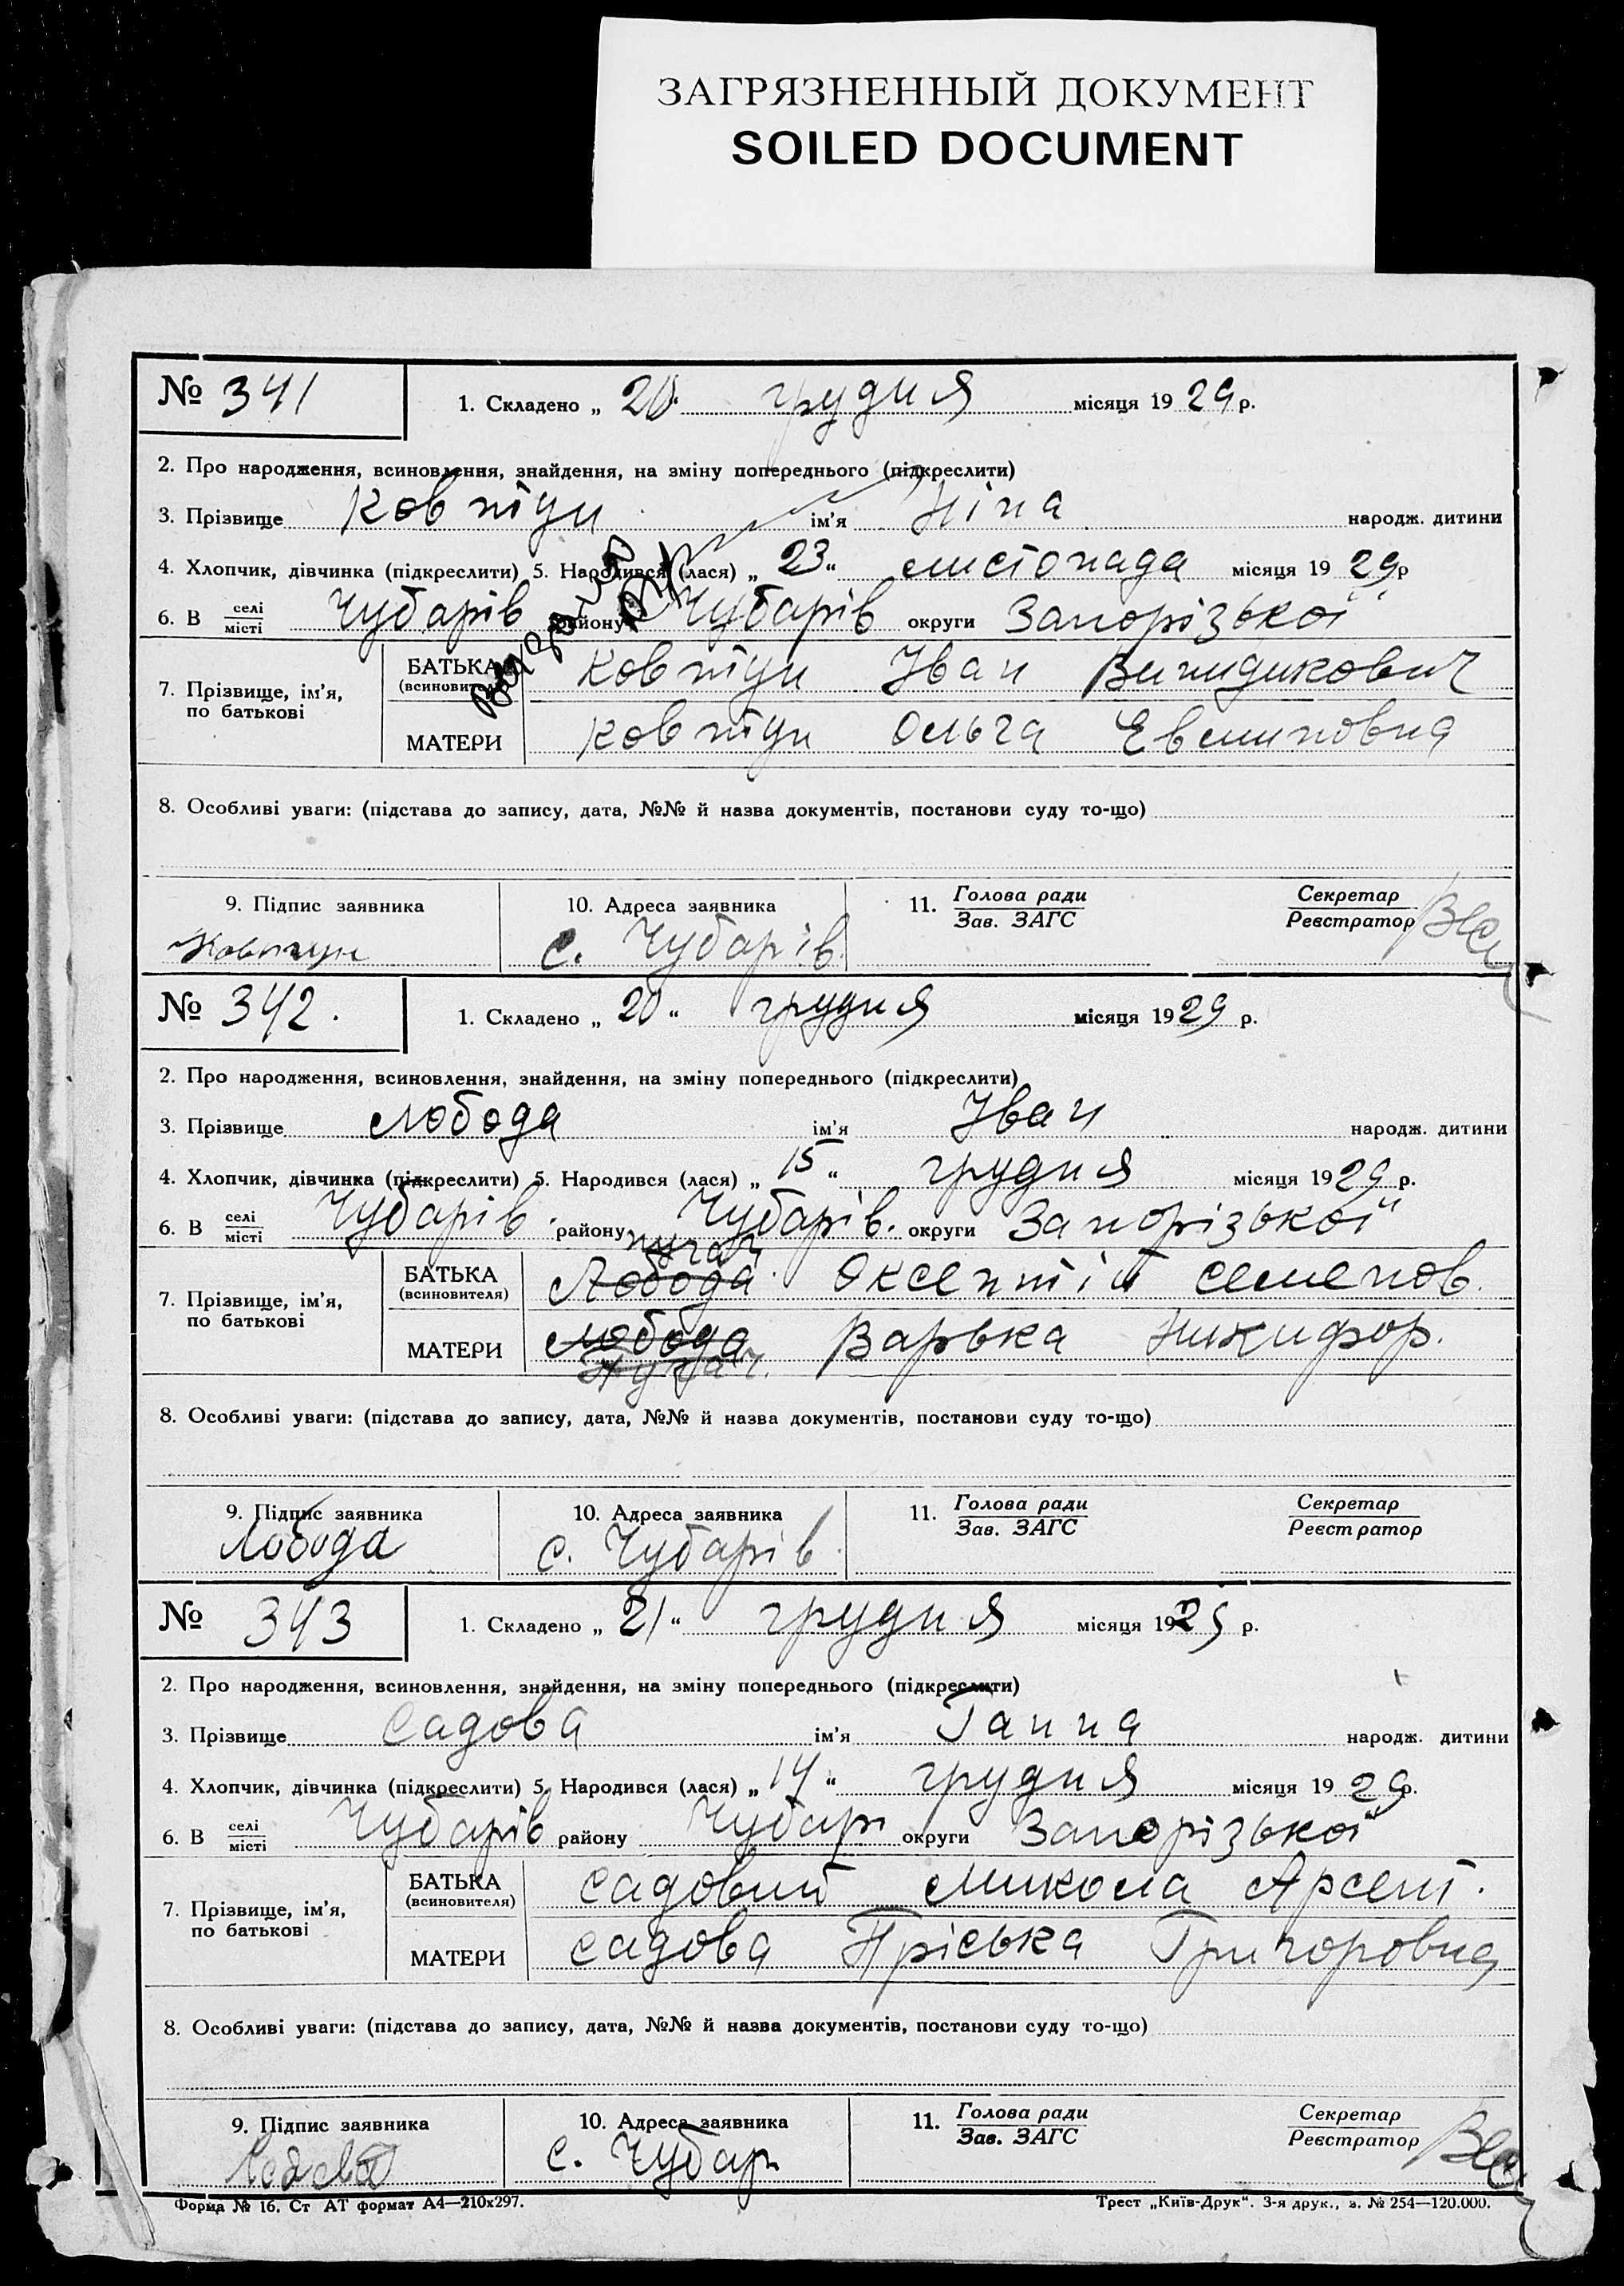 ЗАГРЯЗНЕННЫЙ ДОКУМЕНТ
SOILED DOCUMENT
№ 341
1. Складено „ 20. грудня місяця 1929 р.
2. Про народження, всиновлення, знайдення, на зміну попереднього (підкреслити)
3. Прізвище Ковтун ім'я Ніна народж. дитини
4. Хлопчик, дівчинка (підкреслити) 5. Народився (лася) „ 23 “ листопада місяця 19 29 р
6. В селі/місті Чубарів району Чубарів округи Запорізької
7. Прізвище, ім'я, по батькові
БАТЬКА (всиновителя) Ковтун Іван
МАТЕРИ Ковтун Ольга
8. Особливі уваги: (підстава до запису, дата, №№ й назва документів, постанови суду то-що)
9. Підпис заявника 10. Адреса заявника 11. Голова ради/Зав. ЗАГС Секретар/Реєстратор
Ковтун с. Чубарів
№ 342.
1. Складено „ 20 “ грудня місяця 1929 р.
2. Про народження, всиновлення, знайдення, на зміну попереднього (підкреслити)
3. Прізвище Лобода ім'я Іван народж. дитини
4. Хлопчик, дівчинка (підкреслити) 5. Народився (лася) „ 15 “ грудня місяця 1929 р.
6. В селі/місті Чубарів району Чубарів. округи Запорізької
7. Прізвище, ім'я, по батькові
БАТЬКА (всиновителя) Лобода Оксентій Семенов.
МАТЕРИ Лобода Варька Никифор.
8. Особливі уваги: (підстава до запису, дата, №№ й назва документів, постанови суду то-що)
9. Підпис заявника 10. Адреса заявника 11. Голова ради/Зав. ЗАГС Секретар/Реєстратор
Лобода с. Чубарів
№ 343
1. Складено „ 21 “ грудня місяця 1929 р.
2. Про народження, всиновлення, знайдення, на зміну попереднього (підкреслити)
3. Прізвище Садова ім'я Ганна народж. дитини
4. Хлопчик, дівчинка (підкреслити) 5. Народився (лася) „ 14 “ грудня місяця 19 29 р.
6. В селі/місті Чубарів району Чубар округи Запорізької
7. Прізвище, ім'я, по батькові
БАТЬКА (всиновителя) Садовий Микола Арсент.
МАТЕРИ Садова Пріська Григоровна
8. Особливі уваги: (підстава до запису, дата, №№ й назва документів, постанови суду то-що)
9. Підпис заявника 10. Адреса заявника 11. Голова ради/Зав. ЗАГС Секретар/Реєстратор
с. Чубар
Форма № 16. Ст АТ формат А4—210х297. Трест „Київ-Друк“. 3-я друк., з. № 254—120.000.